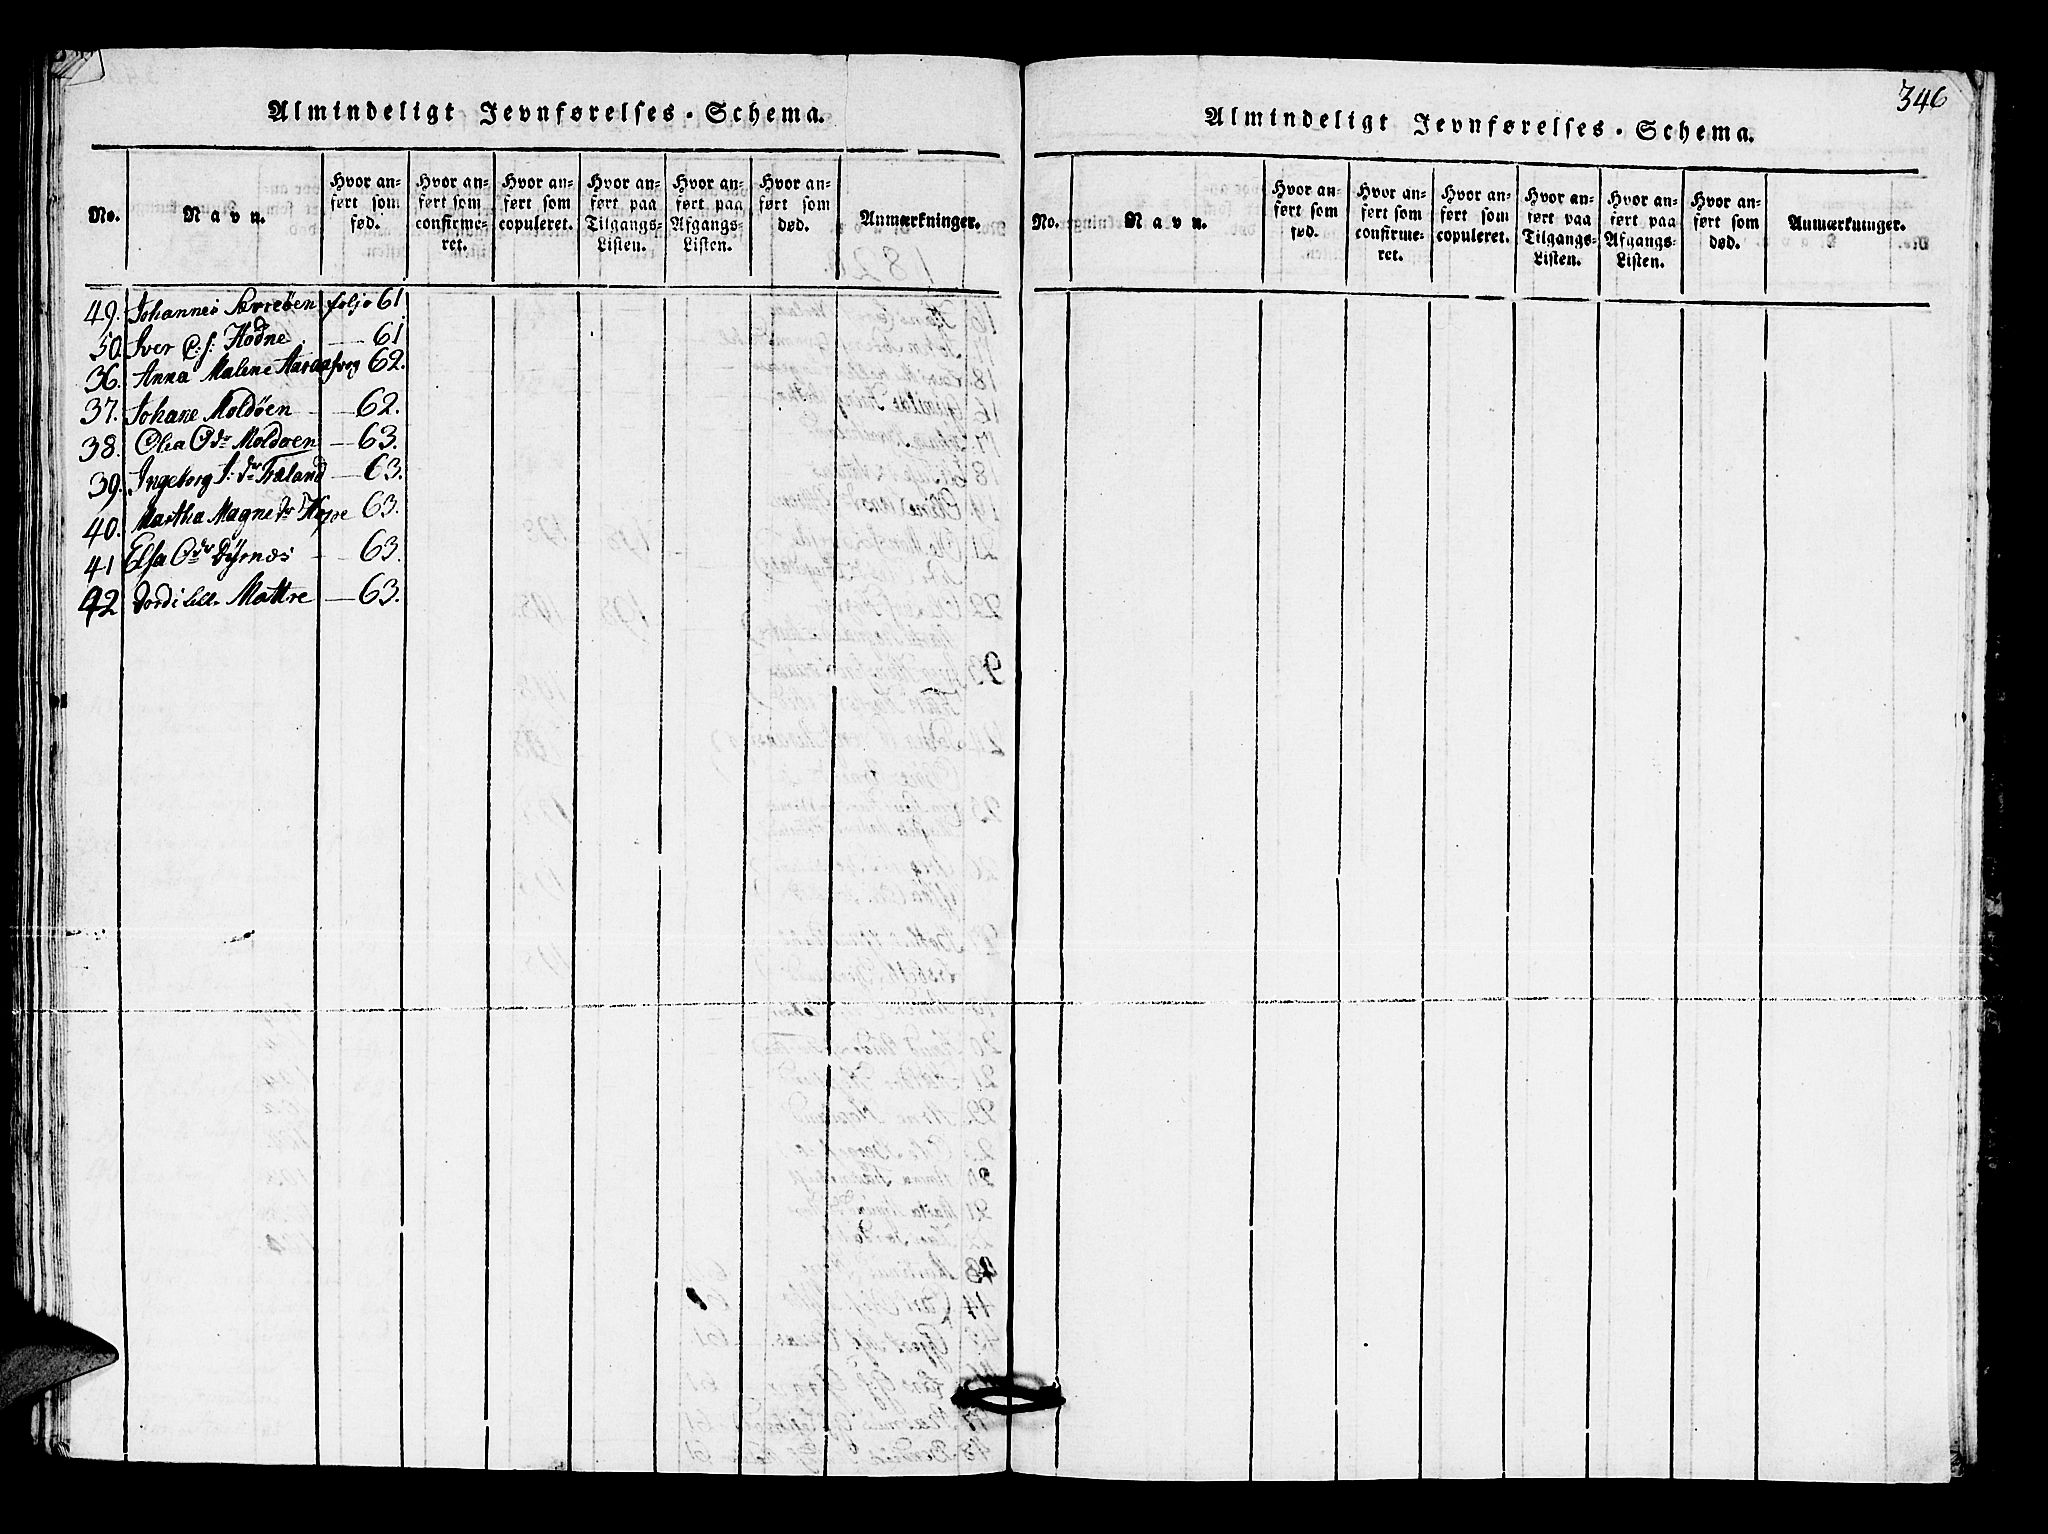 Almindeligt Jevnførelses-Schema.
No.
Navn.
Hvor an-
ført som
fød.
Hvor an-
ført som
confirme-
ret.
Hvor an-
ført som
copuleret.
Hvor an-
ført paa
Tilgangs-
Listen.
Hvor an-
ført paa
Afgangs-
Listen.
Hvor an-
ført som
død.
Anmærkninger.
49. Johannes folio 61
50. Iver P. S. Hodne — 61
36. Anna Malene 62.
37. Johane Moldöen — 62.
38. Olea Moldoen — 63.
39. Ingeborg J. dr — 63.
40. Martha Magne dr 63.
41 Elsa O dr Dÿrnæs — 63.
42 Jordi Mattre — 63.
346
Almindeligt Jevnførelses-Schema.
No.
Navn.
Hvor an-
ført som
fød.
Hvor an-
ført som
confirme-
ret.
Hvor an-
ført som
copuleret.
Hvor an-
ført paa
Tilgangs-
Listen.
Hvor an-
ført paa
Afgangs-
Listen.
Hvor an-
ført som
død.
Anmærkninger.